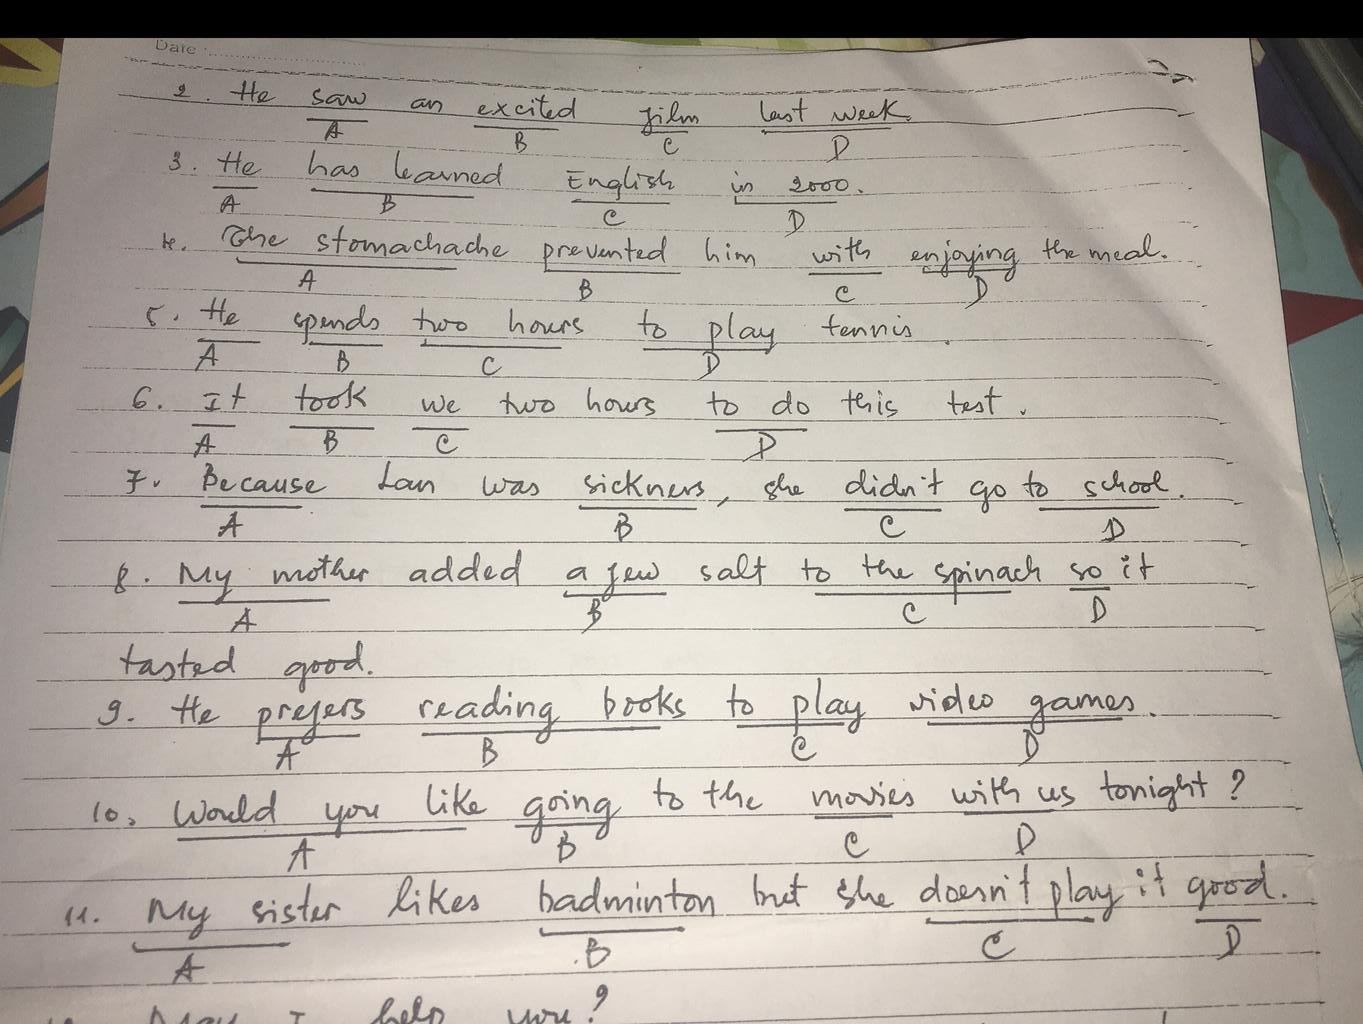 Date
2. He saw an excited film last week.
A B C D
3. He has learned English in 2000.
A B C D
4. The stomachache prevented him with enjoying the meal.
A B C D
5. He spends two hours to play tennis.
A B C D
6. It took we two hours to do this test.
A B C D
7. Because Lan was sickness, she didn't go to school.
A B C D
8. My mother added a few salt to the spinach so it
A B C D
tasted good.
9. He prefers reading books to play video games.
A B C D
10. Would you like going to the movies with us tonight?
A B C D
11. My sister likes badminton but she doesn't play it good.
A B C D
May I help you?